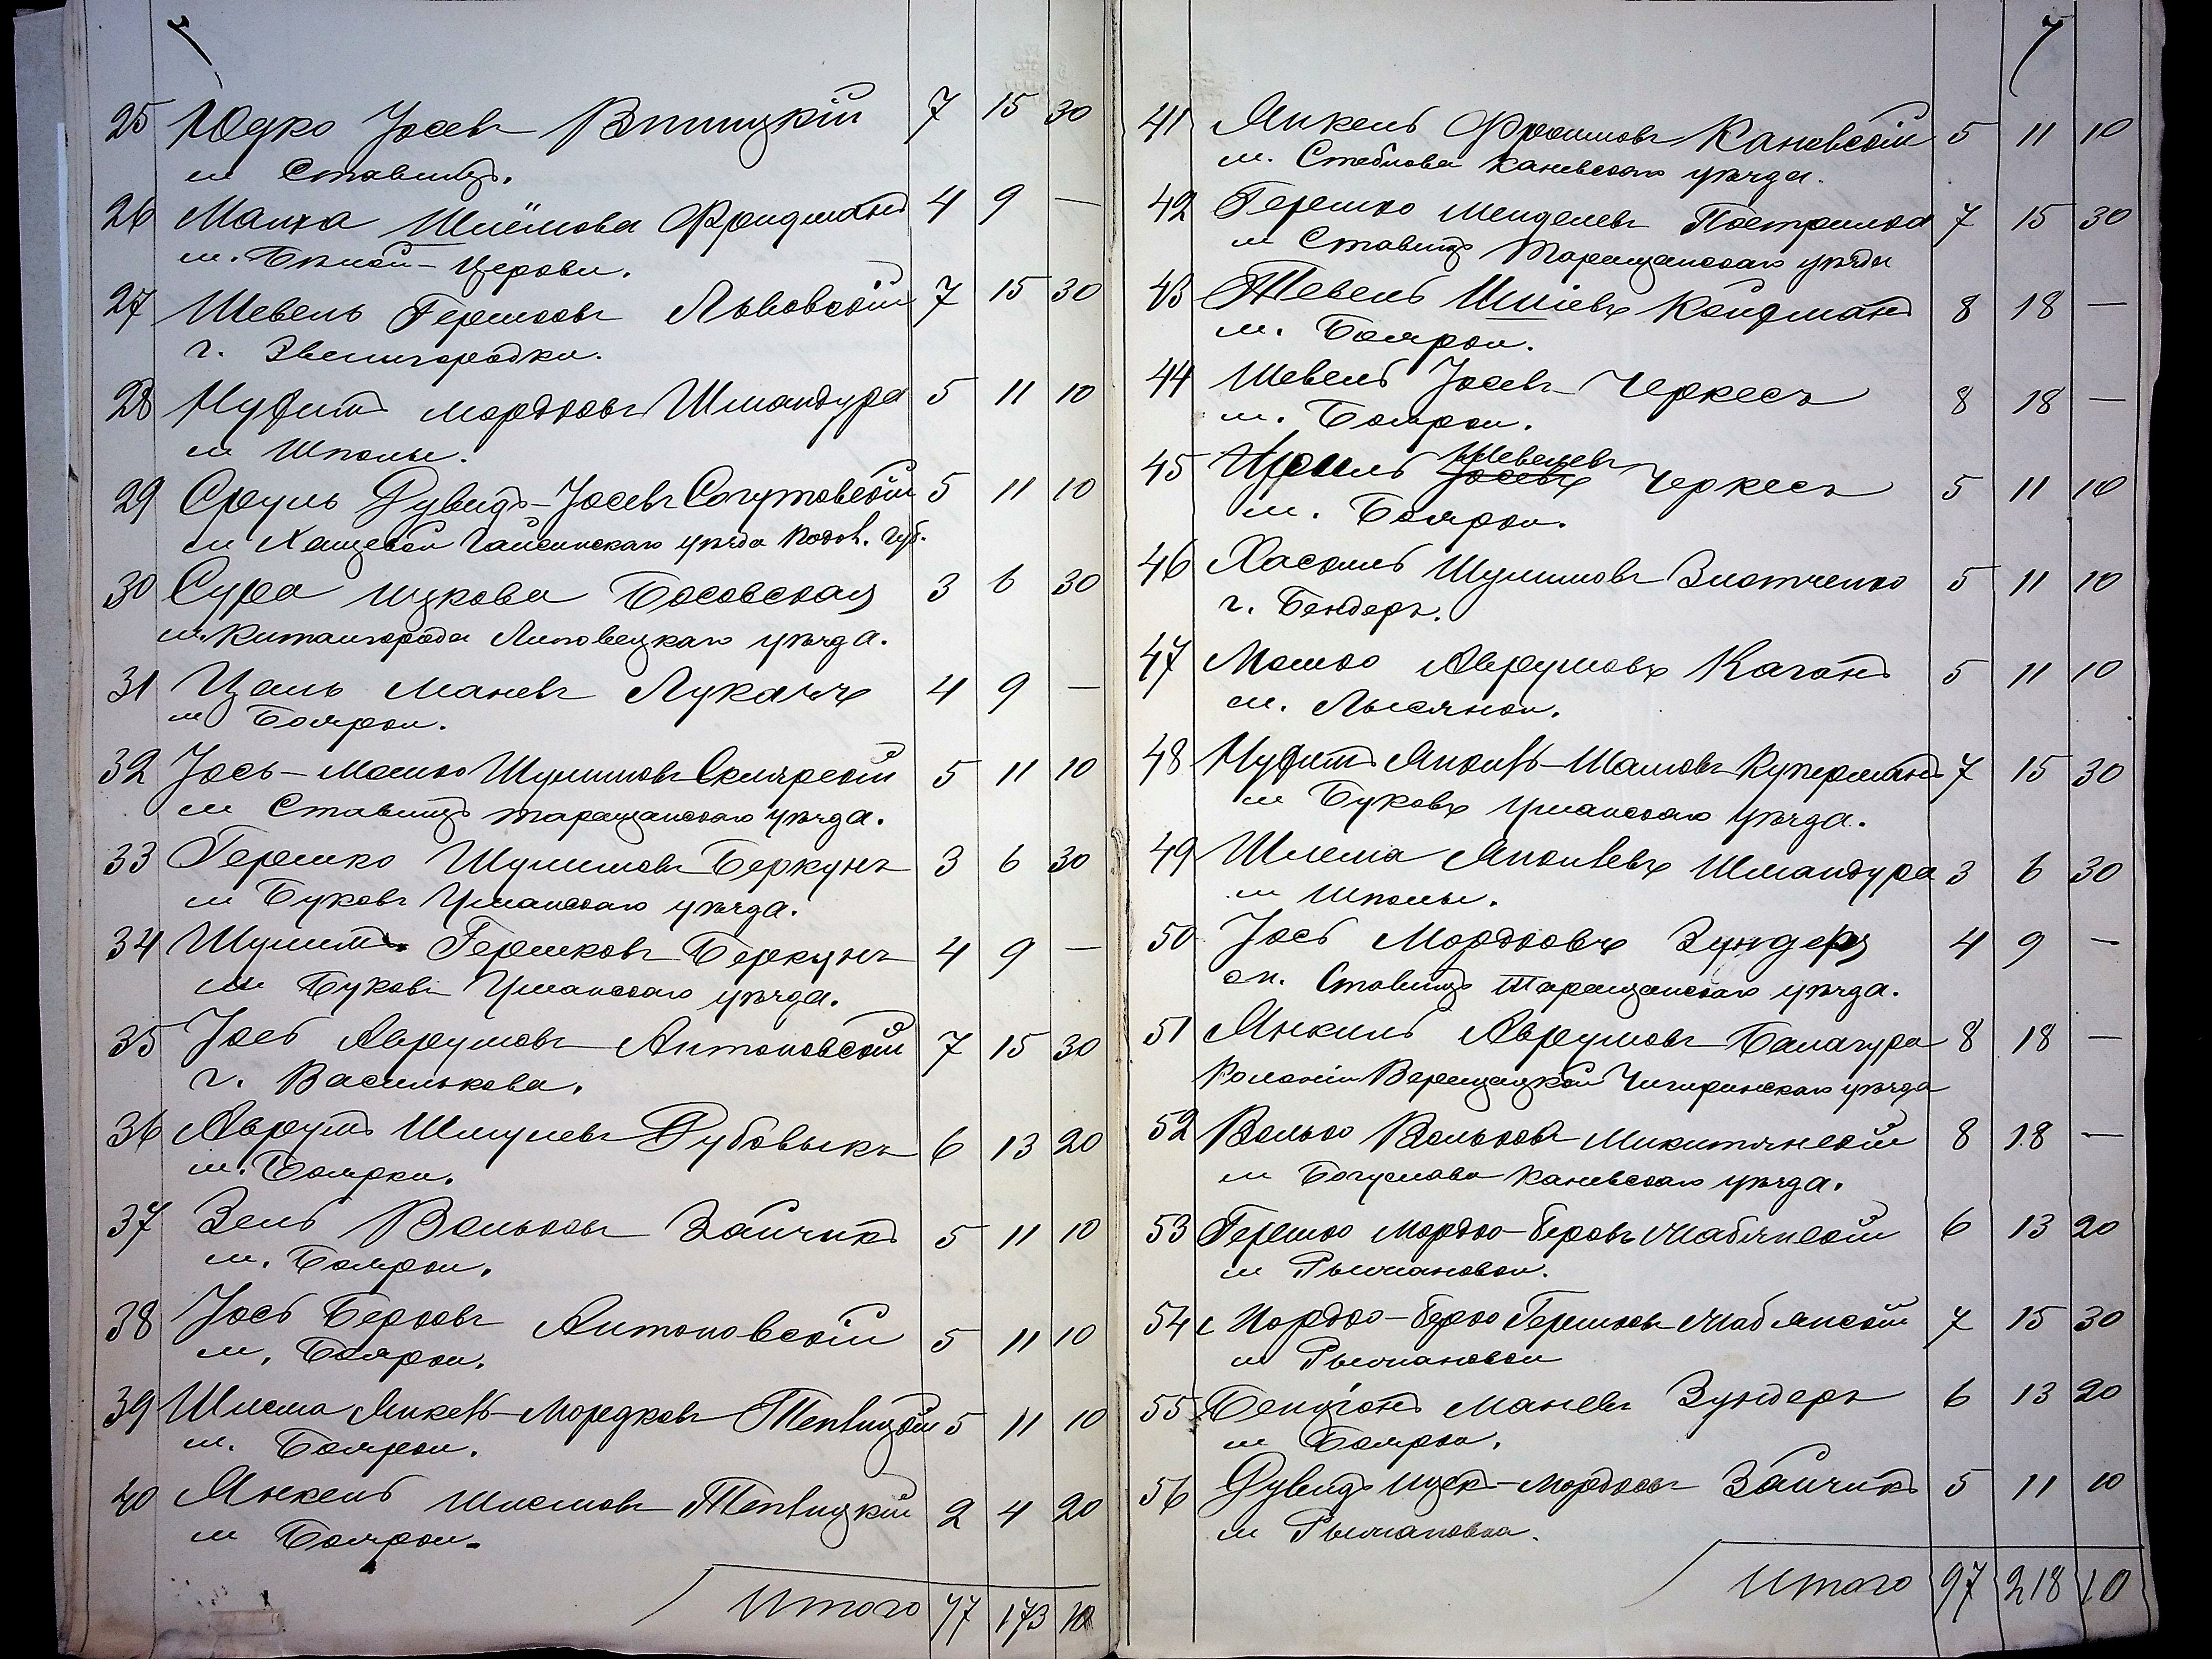 7
25 Юдко Јосевъ Винницкій 7 15 30
м Ставищъ.
26 Малка Шлёмова Фридманъ 4 9 —
м. Бѣлой-Церкви.
27 Шевель Гершковъ Львовскій 7 15 30
г. Звенигородки.
28 Нухимъ Мордковъ Шмандура 5 11 10
м Шполы.
29 Сруль Дувидъ-Јосевъ Согутовскій 5 11 10
м Хащевой Гайсинскаго уѣзда Подол. губ.
30 Сура Ицкова Босовская 3 6 30
м. Китайгорода Липовецкаго уѣзда.
31 Цаль Маневъ Лукачъ 4 9 —
м Боярки.
32 Јось-Мошко Шулимовъ Склярскій 5 11 10
м Ставищъ Таращанскаго уѣзда.
33 Гершко Шулимовъ Беркунъ 3 6 30
м Буковъ Уманскаго уѣзда.
34 Шулимъ Гершковъ Беркунъ 4 9 —
м Буковъ Уманскаго уѣзда.
35 Јось Аврумовъ Антоновскій 7 15 30
г. Василькова.
36 Аврумъ Шмулевъ Дубовыкъ 6 13 20
м. Боярки.
37 Зель Вольковъ Зайчикъ 5 11 10
м. Боярки.
38 Јось Берковъ Антоновскій 5 11 10
м. Боярки.
39 Шлема Янкель-Мордковъ Тепвицкій 5 11 10
м. Боярки.
40 Янкель Шлемовъ Тепвицкій 2 4 20
м Боярки.
Итого 77 173 10
7
41 Янкель Фроимовъ Каневскій 5 11 10
м. Стеблова Каневскаго уѣзда.
42 Гершко Менделевъ Пострилка 7 15 30
м Ставищъ Таращанскаго уѣзда
43 Тевель Шпіевъ Койфманъ 8 18 —
м. Боярки.
44 Шевель Јосевъ Черкесъ 8 18 —
м. Боярки.
45 Сруль Јосевъ Шевелевъ Черкесъ 5 11 10
м. Боярки.
46 Хаскель Шулимовъ Златченко 5 11 10
г. Бендеръ.
47 Мошко Аврумовъ Каганъ 5 11 10
м. Лысянки.
48 Нухимъ Янкель-Шамовъ Куперманъ 7 15 30
м Буковъ Уманскаго уѣзда.
49 Шлема Янкелевъ Шмандура 3 6 30
м Шполы.
50 Јось Мордковъ Зундеръ 4 9 —
м. Ставищъ Таращанскаго уѣзда.
51 Янкиль Аврумовъ Балагура 8 18 —
Колоніи Верещацкой Чигиринскаго уѣзда
52 Волько Вольковъ Микитянскій 8 18 —
м Богуслава Каневскаго уѣзда.
53 Гершко Мордко-Беровъ Чаблянскій 6 13 20
м Рыжановки.
54 Мордко-Берко Гершковъ Чаблянскій 7 15 30
м Рыжановки
55 Бенціонъ Маневъ Зундеръ 6 13 20
м Боярки.
56 Дувидъ Ицек-Мордковъ Зайчикъ 5 11 10
м Рыжановки.
Итого 97 218 10